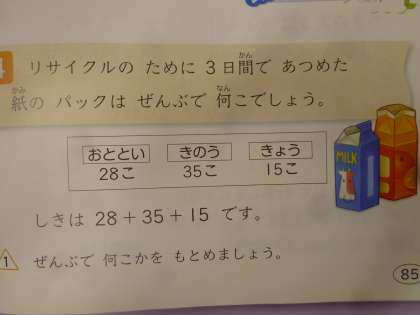 4 リサイクルの ために 3日間で あつめた
紙の パックは ぜんぶで 何こでしょう。
おととい きのう きょう
28こ 35こ 15こ
MILK
しきは 28+35+15 です。
1 ぜんぶで 何こかを もとめましょう。
85